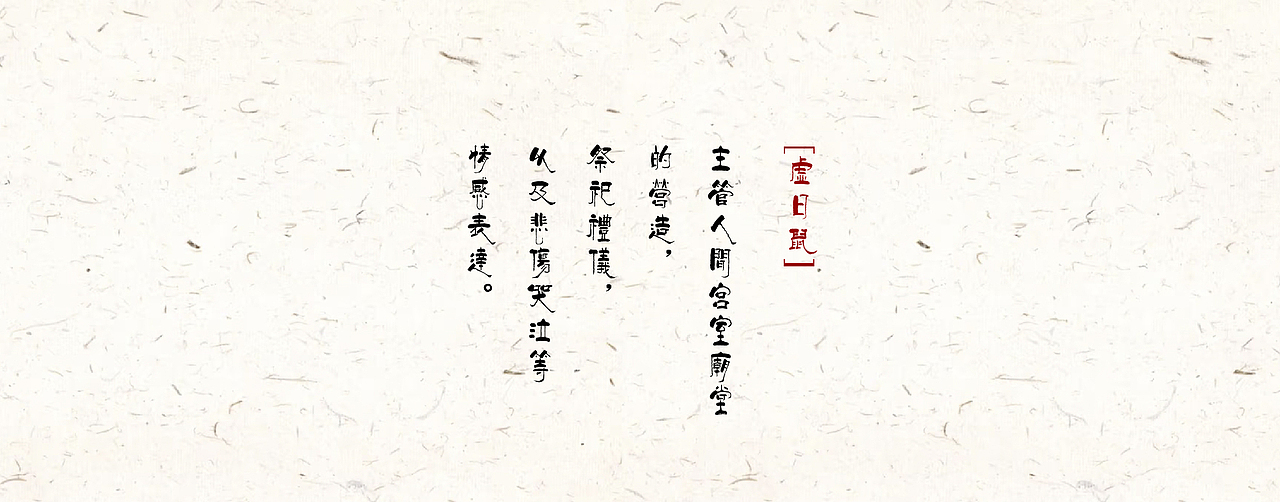 [虛日鼠]
主管人間宮室廟堂
的營造，
祭祀禮儀，
以及悲傷哭泣等
情感表達。